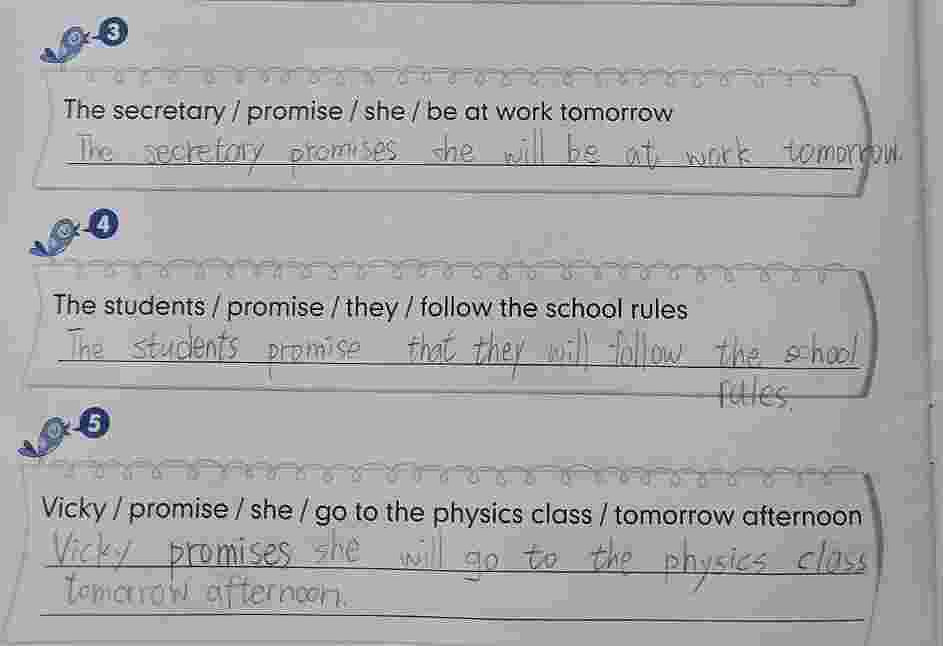 3
The secretary / promise / she / be at work tomorrow
The secretary promises she will be at work tomorrow.
4
The students / promise / they / follow the school rules
The students promise that they will follow the school
rules.
5
Vicky / promise / she / go to the physics class / tomorrow afternoon
Vicky promises she will go to the physics class
tomorrow afternoon.